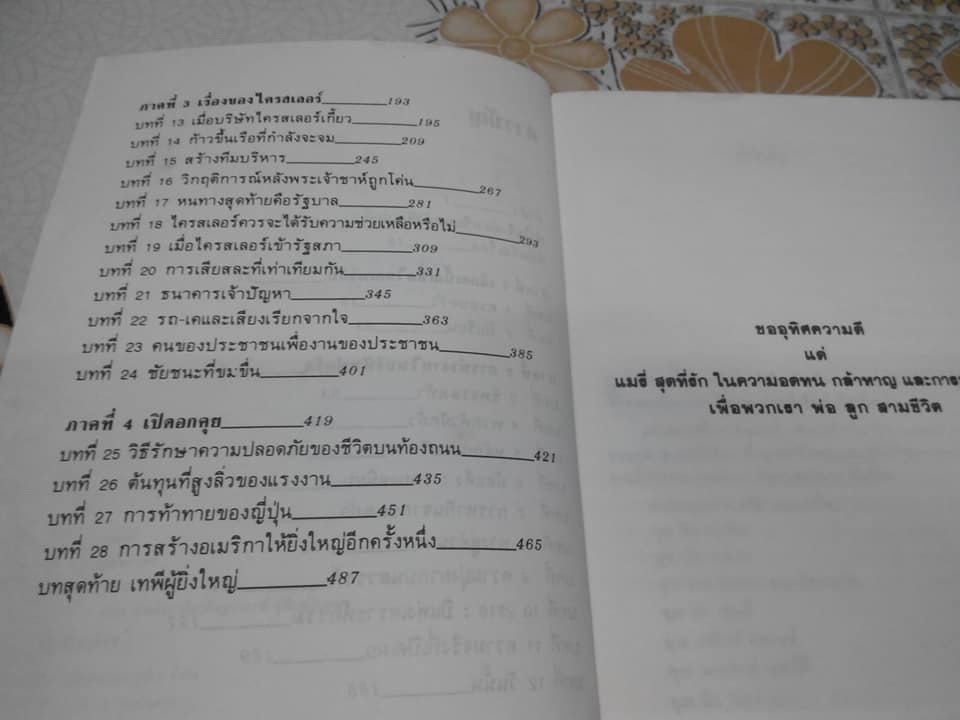 ภาคที่ 3 เรื่องของไครสเลอร์__________193
บทที่ 13 เมื่อบริษัทไครสเลอร์เกี้ยว__________195
บทที่ 14 ก้าวขึ้นเรือที่กำลังจะจม__________209
บทที่ 15 สร้างทีมบริหาร__________245
บทที่ 16 วิกฤติการณ์หลังพระเจ้าชาห์ถูกโค่น__________267
บทที่ 17 หนทางสุดท้ายคือรัฐบาล__________281
บทที่ 18 ไครสเลอร์ควรจะได้รับความช่วยเหลือหรือไม่__________293
บทที่ 19 เมื่อไครสเลอร์เข้ารัฐสภา__________309
บทที่ 20 การเสียสละที่เท่าเทียมกัน__________331
บทที่ 21 ธนาคารเจ้าปัญหา__________345
บทที่ 22 รถ-เคและเสียงเรียกจากใจ__________363
บทที่ 23 คนของประชาชนเพื่องานของประชาชน__________385
บทที่ 24 ชัยชนะที่ขมขื่น__________401
ภาคที่ 4 เปิดอกคุย__________419
บทที่ 25 วิธีรักษาความปลอดภัยของชีวิตบนท้องถนน__________421
บทที่ 26 ต้นทุนที่สูงลิ่วของแรงงาน__________435
บทที่ 27 การท้าทายของญี่ปุ่น__________451
บทที่ 28 การสร้างอเมริกาให้ยิ่งใหญ่อีกครั้งหนึ่ง__________465
บทสุดท้าย เทพีผู้ยิ่งใหญ่__________487
ขออุทิศความดี
แด่
แมรี่ สุดที่รัก ในความอดทน กล้าหาญ และการ
เพื่อพวกเรา พ่อ ลูก สามชีวิต